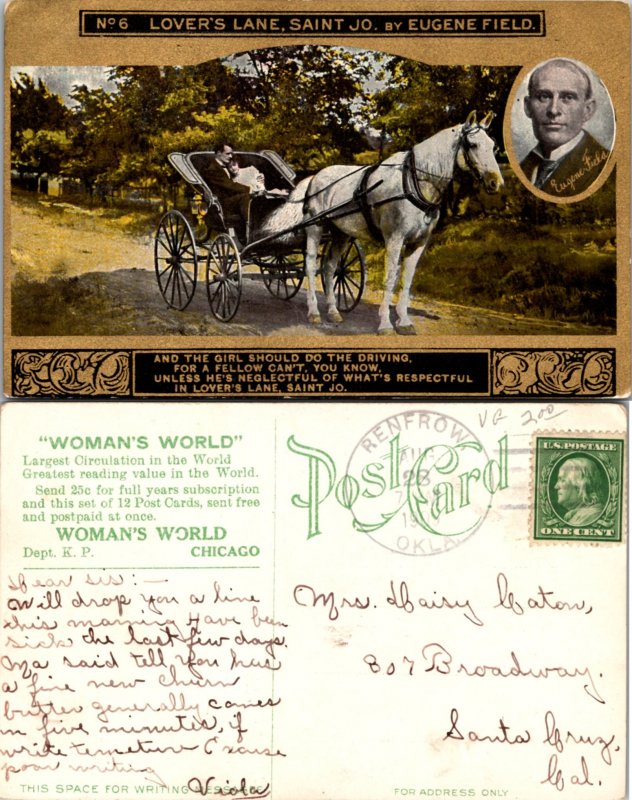 Nº6 LOVER'S LANE, SAINT JO. BY EUGENE FIELD.
Eugene Field
AND THE GIRL SHOULD DO THE DRIVING,
FOR A FELLOW CAN'T, YOU KNOW,
UNLESS HE'S NEGLECTFUL OF WHAT'S RESPECTFUL
IN LOVER'S LANE, SAINT JO.
"WOMAN'S WORLD"
Largest Circulation in the World
Greatest reading value in the World.
Send 25c for full years subscription
and this set of 12 Post Cards, sent free
and postpaid at once.
WOMAN'S WORLD
Dept. K. P. CHICAGO
Post Card
RENFROW
AUG
28
OKLA.
VG 200
U.S. POSTAGE
ONE CENT
Dear sis:-
Will drop you a line
this morning Have been
sick the last few days.
Ma said tell you her
a fine new churn
butter generally comes
in five minutes, if
write Excuse
poor writing
Viola
Mrs. Daisy Caton,
807 Broadway.
Santa Cruz,
Cal.
THIS SPACE FOR WRITING MESSAGE
FOR ADDRESS ONLY